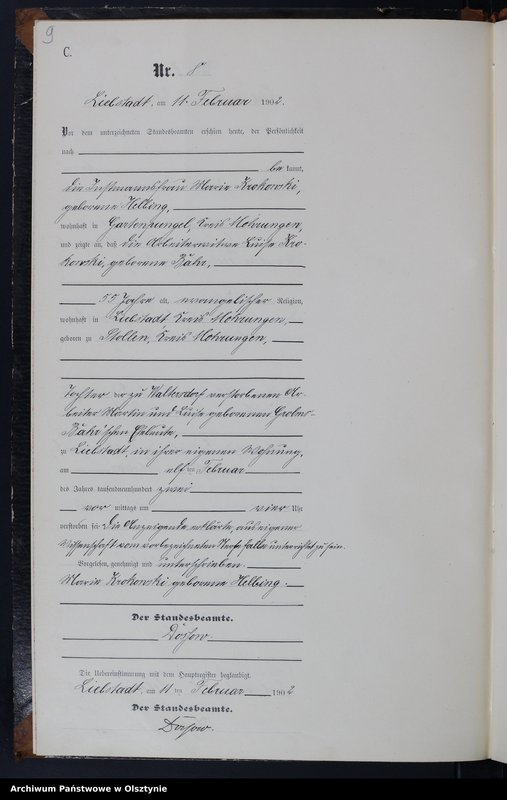 9
C.
Nr. 8
Liebstadt, am 11. Februar 1902.
Vor dem unterzeichneten Standesbeamten erschien heute, der Persönlichkeit
nach
bekannt,
die Instmannsfrau Marie Krokowski,
geborene Helbing,
wohnhaft in Gartenpungel, Kreis Mohrungen,
und zeigte an, daß die Arbeiterwittwe Luise Kro-
kowski, geborene Bähr,
55 Jahre alt, evangelischer Religion,
wohnhaft in Liebstadt Kreis Mohrungen,
geboren zu Stollen, Kreis Mohrungen,
Tochter der zu Waltersdorf verstorbenen Ar-
beiter Martin und Luise geborenen
Bähr'schen Eheleute,
zu Liebstadt, in ihrer eigenen Wohnung,
am elf ten Februar
des Jahres tausendneunhundert zwei
vor mittags um vier Uhr
verstorben sei. Die Anzeigende erklärte, aus eigener
Wissenschaft vom vorbezeichneten Sterbefalle unterrichtet zu sein.
Vorgelesen, genehmigt und unterschrieben.
Marie Krokowski geborene Helbing.
Der Standesbeamte.
Die Uebereinstimmung mit dem Hauptregister beglaubigt.
Liebstadt, am 11 ten Februar 1902
Der Standesbeamte.
Archiwum Państwowe w Olsztynie